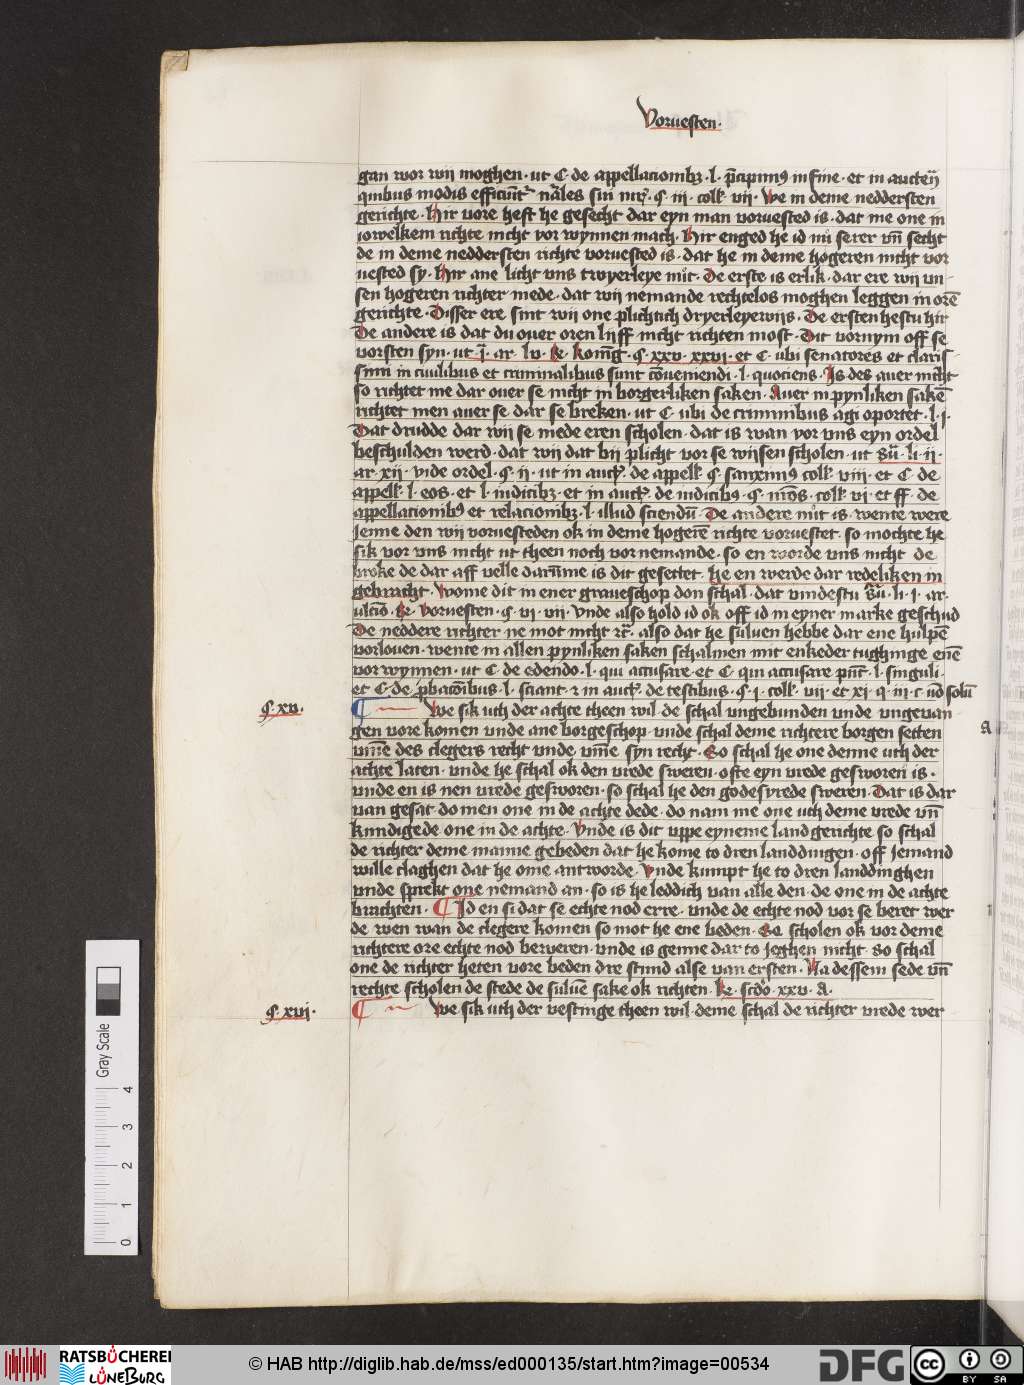 Voruesten.
gan wor wij moghen · ut C · de appellacionibꝫ · l · p̄cipimꝰ in fine · et in aucten̄
quibus modis efficiunt² nāles sui · §· iij · coll · vij · We in deme neddersten
gerichte · Hir vore hest he gesecht dar eyn man voruested is · dat me one in
iowelkem richte nicht vor wynnen mach · Hir enged he id serer vn̄ secht
de in deme neddersten richte voruested is · dat he in deme hogeren nicht vor
uested sy · Hir ane licht vns twyerleye · De erste is erlik · dar ere wij vn
sen hogeren richter mede · dat wij nemande rechtelos moghen leggen in orē
gerichte · Disser ere sint wij one plichtich dryerleyewijs · De ersten hestu hir
De andere is dat du ouer oren lijff nicht richten most · Dit vornym off se
vorsten syn · ut · ar · lv · § · xxv · xxvi · et C · ubi senatores et claris
simi in ciuilibus et criminalibus sunt cōueniendi · l · quociens · Is des auer nicht
so richtet me dar ouer se nicht in borgerliken saken · Auer in pynliken sakē
richtet men auer se dar se breken · ut C · ubi de criminibus agi oportet · l · j ·
Dat drudde dar wij se mede eren scholen · dat is wan vor vns eyn ordel
beschulden werd · dat wij dat bij plicht vor se wijsen scholen · ut · li · ij ·
ar · xij · vide ordel · § · ij · ut in auct · de appell · § · coll · viij · et C · de
appell · l · eos · et l · iudicibꝫ · et in auct · de iudicibꝰ · § · coll · vi · et ff · de
appellacionibꝰ et relacionibꝫ · l · illud sciendū · De andere is · wente were
Jenne den wij voruesteden ok in deme hogerē richte voruestet · so mochte he
sik vor vns nicht ut theen noch vor nemande · so en worde vns nicht de
broke de dar aff velle darūme is dit gesettet · he en werde dar redeliken in
gebracht · Wome dit in ener graueschop don schal · dat vindestu · li · j · ar ·
· Voruesten · § · vi · vij · Vnde also hold id ok off id in eyner marke geschud
De neddere richter ne mot nicht · also dat he suluen hebbe dar ene hulpē
vorlouen · wente in allen pynliken saken schalmen mit enkeder tughinge enē
vor wynnen · ut C · de edendo · l · qui accusare · et C · qui accusare · l · singuli ·
et C · de · l · sciant · in auct · de testibus · § · j · coll · vij · et xj · q · iij · c ·
§ · xv · We sik uth der achte theen wil · de schal vngebunden vnde vngevan
gen vore komen vnde ane borgeschop · vnde schal deme richtere borgen setten
vm̄e des clegers recht vnde vm̄e syn recht · So schal he one denne uth der
achte laten · vnde he schal ok den vrede sweren · ofte eyn vrede gesworen is ·
vnde en is nen vrede gesworen · so schal he den godesvrede sweren · Dat is dar
van gesat do men one in de achte dede · do nam me one uth deme vrede vn̄
kundigede one in de achte · Vnde is dit vppe eyneme landgerichte so schal
de richter deme manne gebeden dat he kome to dren landdingen · off Jemand
wille claghen dat he ome antworde · Vnde kumpt he to dren landdinghen
vnde sprekt one nemand an · so is he leddich van alle den · de one in de achte
brachten · ¶ Id en si dat se echte nod erre · vnde de echte nod vor se beret wer
de wen wan de clegere komen so mot he ene beden · Se scholen ok vor deme
richtere ore echte nod beweren · vnde is genne dar to jeghen nicht · So schal
one de richter heten vore beden dre stund alse van ersten · Na dessem sede vn̄
rechte scholen de stede de suluē sake ok richten · xxv · a ·
§ · xvj · We sik uth der vestinge theen wil · deme schal de richter vrede wer
a
Gray Scale
0 1 2 3 4
RATSBÜCHEREI
LÜNEBURG
© HAB http://diglib.hab.de/mss/ed000135/start.htm?image=00534
DFG
cc
BY SA